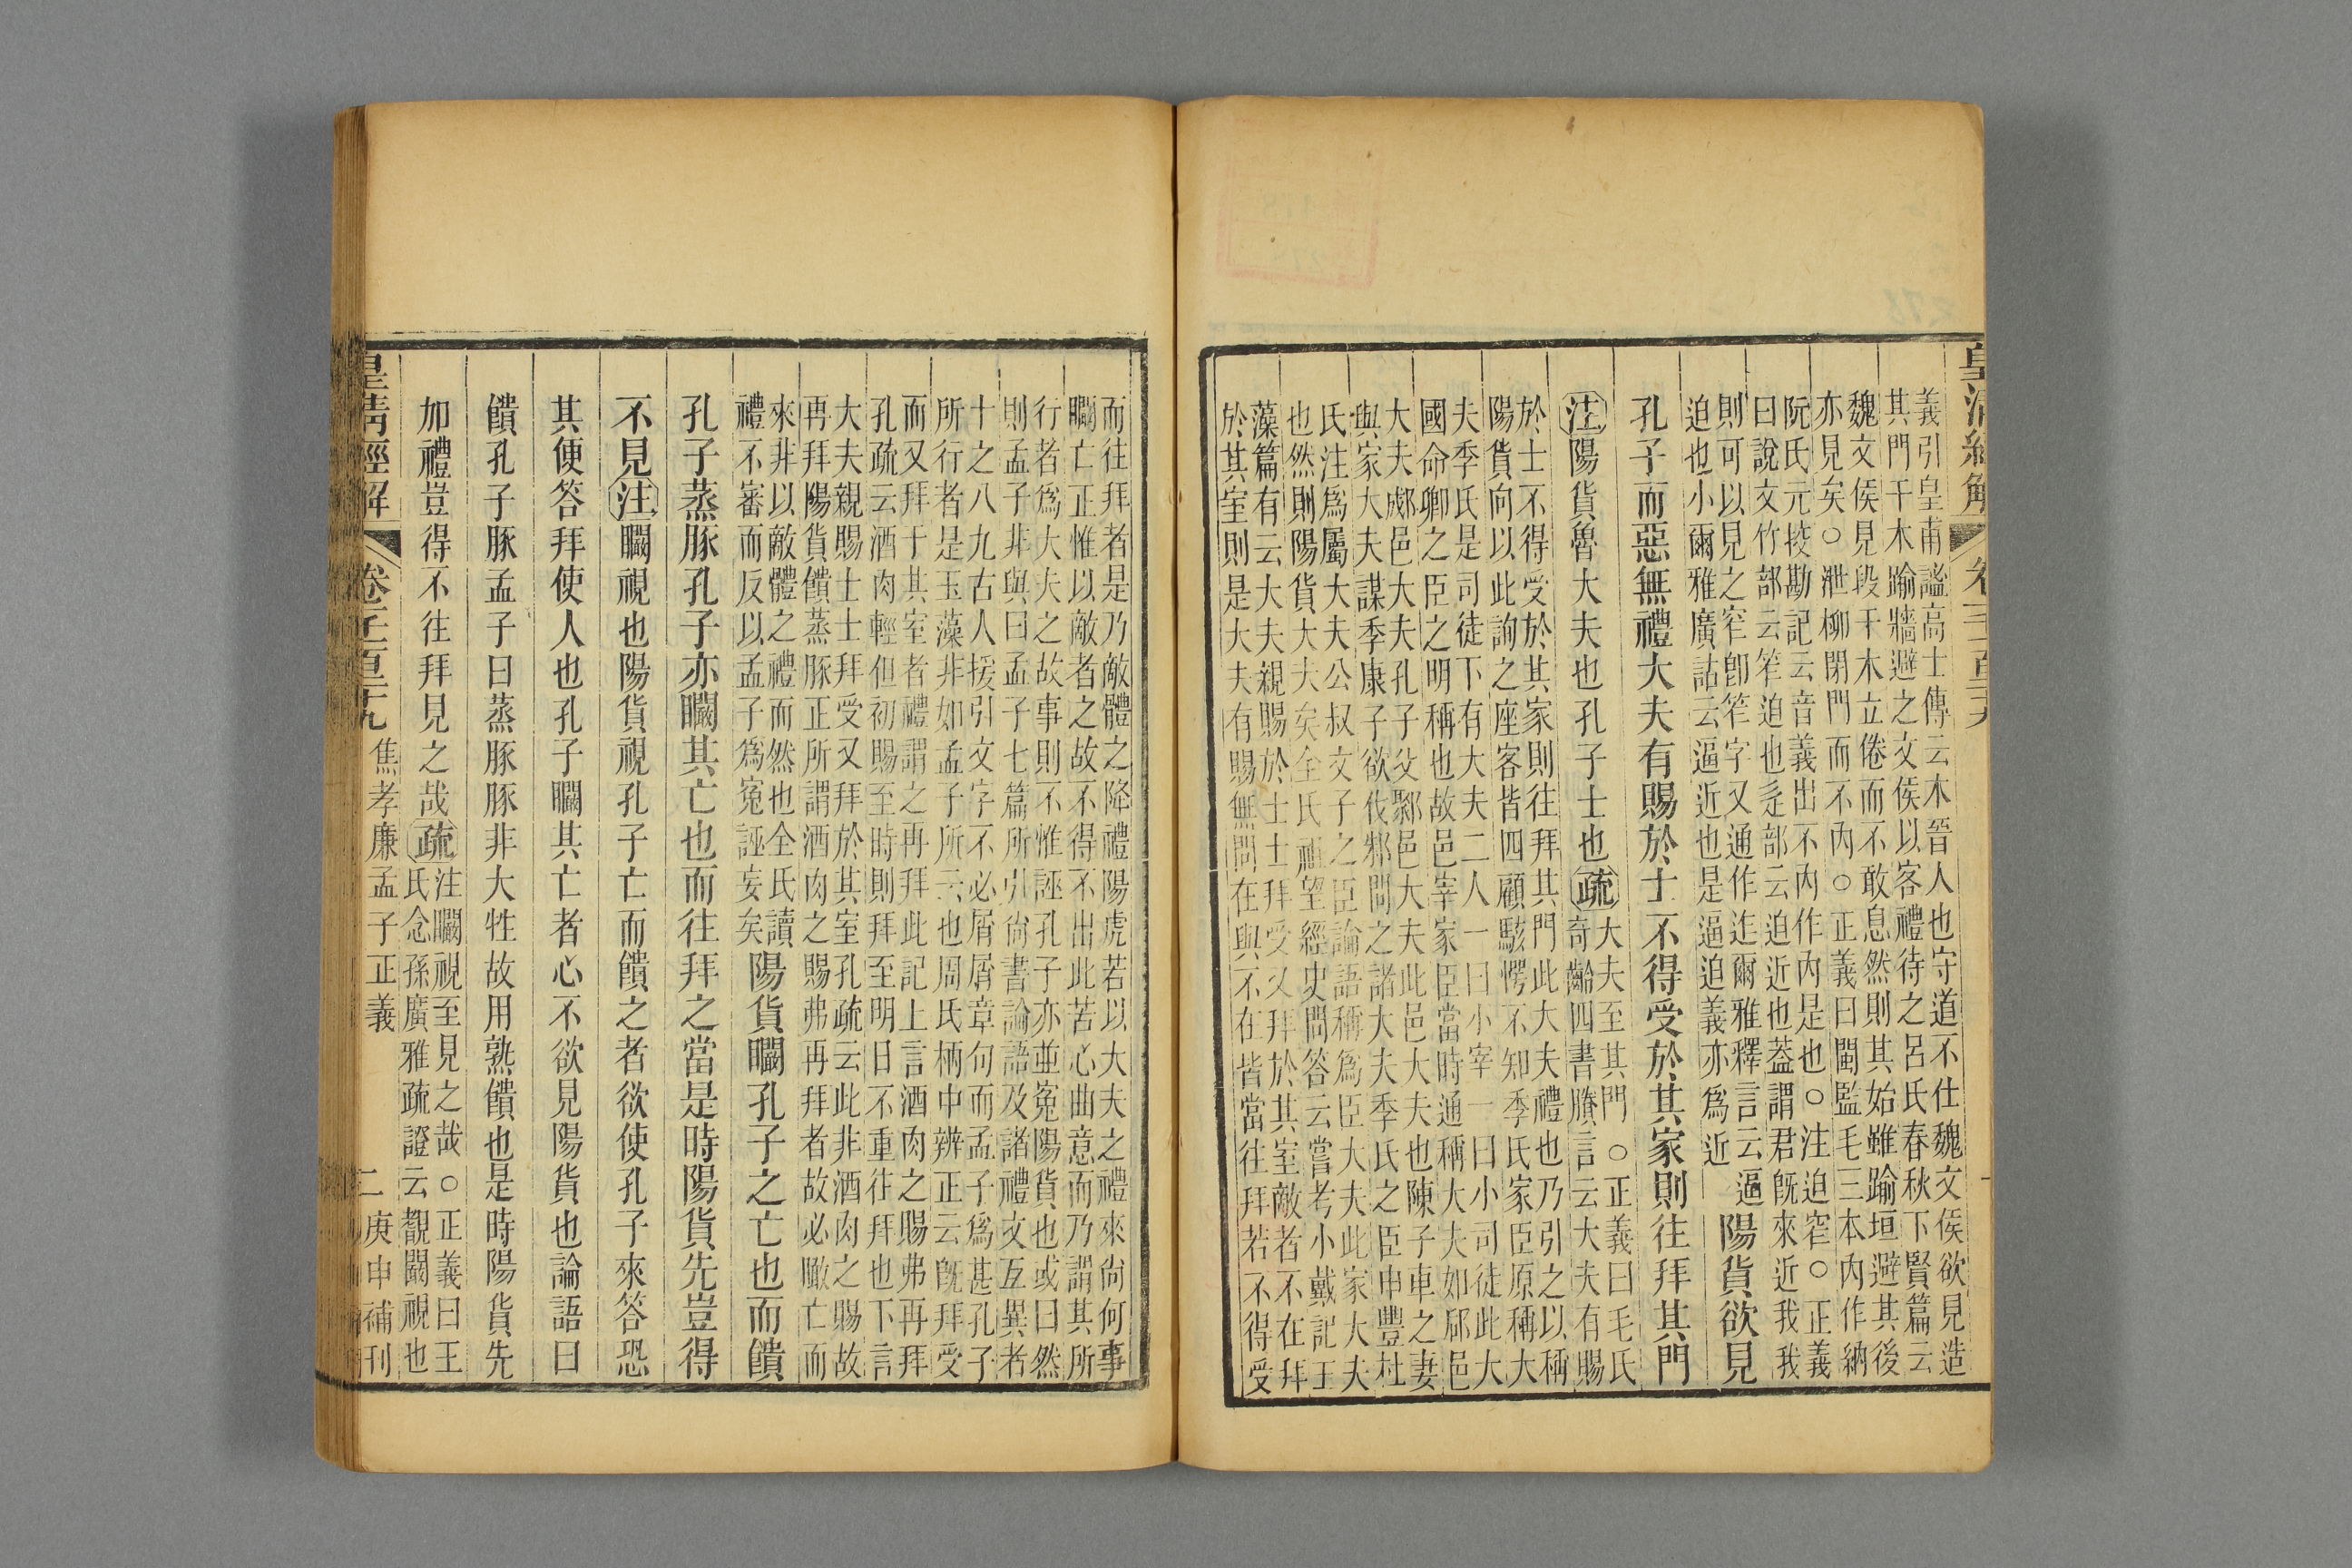 皇清經解
義引皇甫謐高士傳云木晉人也守道不仕魏文侯欲見造
其門干木踰牆避之文侯以客禮待之呂氏春秋下賢篇云
魏文侯見段干木立倦而不敢息然則其始雖踰垣避其後
亦見矣○泄柳閉門而不內○正義曰閩監毛三本內作納
阮氏元挍勘記云音義出不內作內是也○注迫窄○正義
曰說文竹部云笮迫也辵部云迫近也葢謂君旣來近我我
則可以見之窄卽笮字又通作迮爾雅釋言云逼
迫也小爾雅廣詁云逼近也是逼迫義亦爲近
陽貨欲見
孔子而惡無禮大夫有賜於士不得受於其家則往拜其門
注陽貨魯大夫也孔子士也疏
大夫至其門○正義曰毛氏
奇齡四書賸言云大夫有賜
於士不得受於其家則往拜其門此大夫禮也乃引之以稱
陽貨向以此詢之座客皆四顧駭愕不知季氏家臣原稱大
夫季氏是司徒下有大夫二人一曰小宰一曰小司徒此大
國命卿之臣之明稱也故邑宰家臣當時通稱大夫如郈邑
大夫郕邑大夫孔子父鄹邑大夫此邑大夫也陳子車之妻
與家大夫謀季康子欲伐邾問之諸大夫季氏之臣申豐杜
氏注爲屬大夫公叔文子之臣論語稱爲臣大夫此家大夫
也然則陽貨大夫矣全氏祖望經史問答云嘗考小戴記玉
藻篇有云大夫親賜於士士拜受又拜於其室敵者不在拜
於其室則是大夫有賜無問在與不在皆當往拜若不得受
而往拜者是乃敵體之降禮陽虎若以大夫之禮來尙何事
矙亡正惟以敵者之故不得不出此苦心曲意而乃謂其所
行者爲大夫之故事則不惟誣孔子亦並冤陽貨也或曰然
則孟子非與曰孟子七篇所引尙書論語及諸禮文互異者
十之八九古人援引文字不必屑屑章句而孟子爲甚孔子
所行者是玉藻非如孟子所云也周氏柄中辨正云旣拜受
而又拜于其室者禮謂之再拜此記上言酒肉之賜弗再拜
孔疏云酒肉輕但初賜至時則拜至明日不重往拜也下言
大夫親賜士士拜受又拜於其室孔疏云此非酒肉之賜故
再拜陽貨饋蒸豚正所謂酒肉之賜弗再拜者故必瞰亡而
來非以敵體之禮而然也全氏讀
禮不審而反以孟子爲冤誣妄矣
陽貨矙孔子之亡也而饋
孔子蒸豚孔子亦矙其亡也而往拜之當是時陽貨先豈得
不見注矙視也陽貨視孔子亡而饋之者欲使孔子來答恐
其便答拜使人也孔子矙其亡者心不欲見陽貨也論語曰
饋孔子豚孟子曰蒸豚豚非大牲故用熟饋也是時陽貨先
加禮豈得不往拜見之哉疏
注矙視至見之哉○正義曰王
氏念孫廣雅疏證云覰闞視也
皇清經解
焦孝廉孟子正義
二
庚申補刊